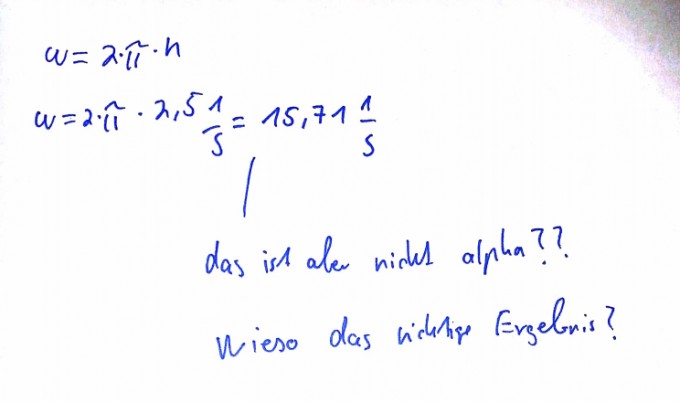 ω = 2·π·n
ω = 2·π · 2,5 1/s = 15,71 1/s
das ist aber nicht alpha??
Wieso das richtige Ergebnis?